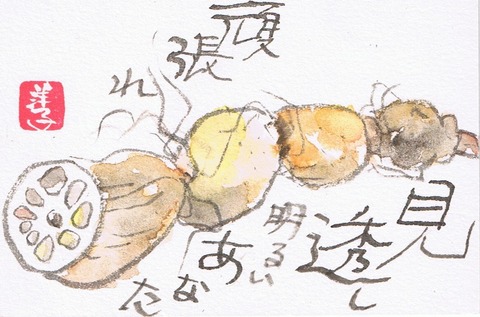 頑
張
れ
見
透し
明るい
あ
な
た